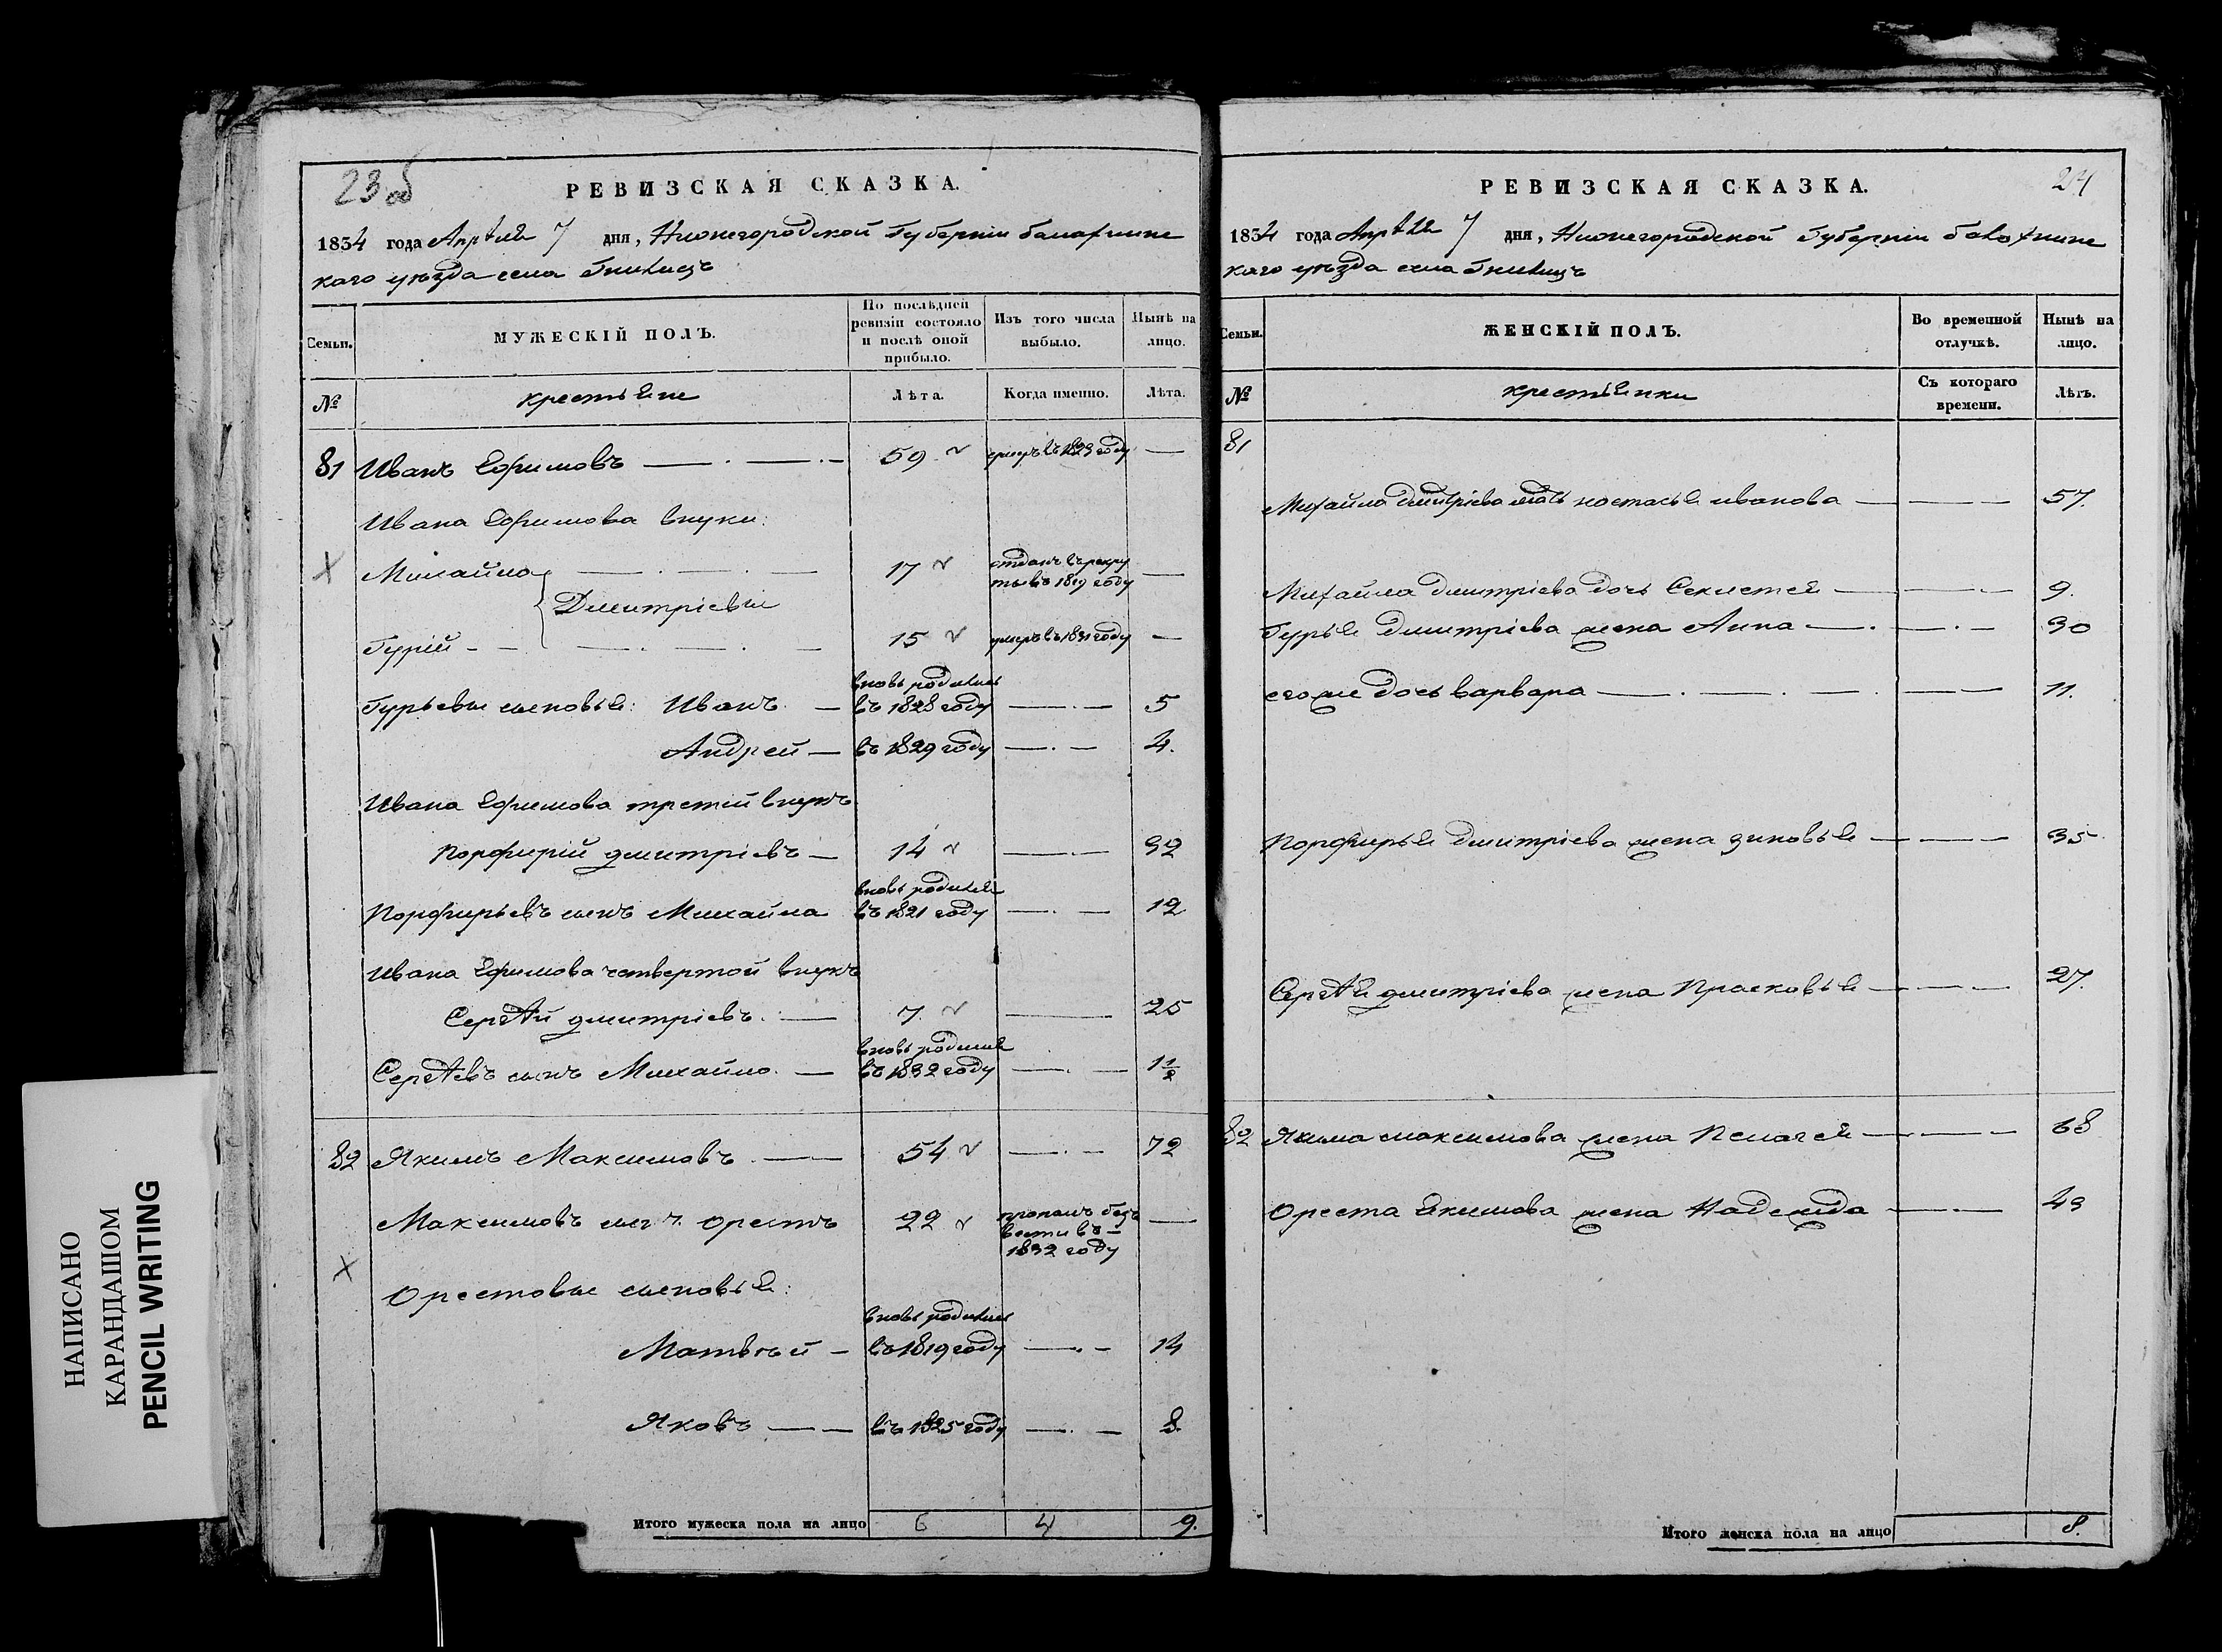 23 об
РЕВИЗСКАЯ СКАЗКА.
1834 года Апрѣля 7 дня, Нижегородской Губерніи балахнинс
каго уѣзда села Гнилицъ
Семьи.
МУЖЕСКІЙ ПОЛЪ.
По послѣдней ревизіи состояло и послѣ оной прибыло.
Изъ того числа выбыло.
Нынѣ на лицо.
№
крестьяне
Лѣта.
Когда именно.
Лѣта.
81 Иванъ Ефимовъ 59 умеръ въ 1823 году —
Ивана Ефимова внуки:
Михайло 17 отданъ въ рекру
ты въ 1819 году —
Дмитріевы
Гурій 15 умеръ въ 1831 году —
вновь родились
Гурьевы сыновья: Иванъ въ 1828 году 5
Андрей въ 1829 году 4.
Ивана Ефимова третій внукъ
Порфирій Дмитріевъ 14 32
вновь родился
Порфирьевъ сынъ Михайла въ 1821 году 12
Ивана Ефимова четвертой внукъ
Сергѣй Дмитріевъ 7 25
вновь родился
Сергѣевъ сынъ Михайло въ 1832 году 1½
82 Якимъ Максимовъ 54 72
Максимовъ сынъ Орестъ 22 пропалъ безъ
вести въ
1832 году —
Орестовы сыновья:
вновь родились
Матвѣй въ 1819 году 14
Яковъ въ 1825 году 8
Итого мужеска пола на лицо 6 4 9.
24
РЕВИЗСКАЯ СКАЗКА.
1834 года Апрѣля 7 дня, Нижегородской Губерніи балахнинс
каго уѣзда села Гнилицъ
Семьи.
ЖЕНСКІЙ ПОЛЪ.
Во временной отлучкѣ.
Нынѣ на лицо.
№
крестьянки
Съ котораго времени.
Лѣтъ.
81
Михайла Дмитріева мать настасья иванова 57.
Михайла Дмитріева дочь Секлетея 9.
Гурья Дмитріева жена Анна 30
его же дочь варвара 11.
Порфирья Дмитріева жена зиновья 35
Сергѣя Дмитріева жена Прасковья 27.
82 Якима максимова жена Пелагея 68
Ореста Екимова жена Надежда 43
Итого женска пола на лицо 8.
НАПИСАНО
КАРАНДАШОМ
PENCIL WRITING